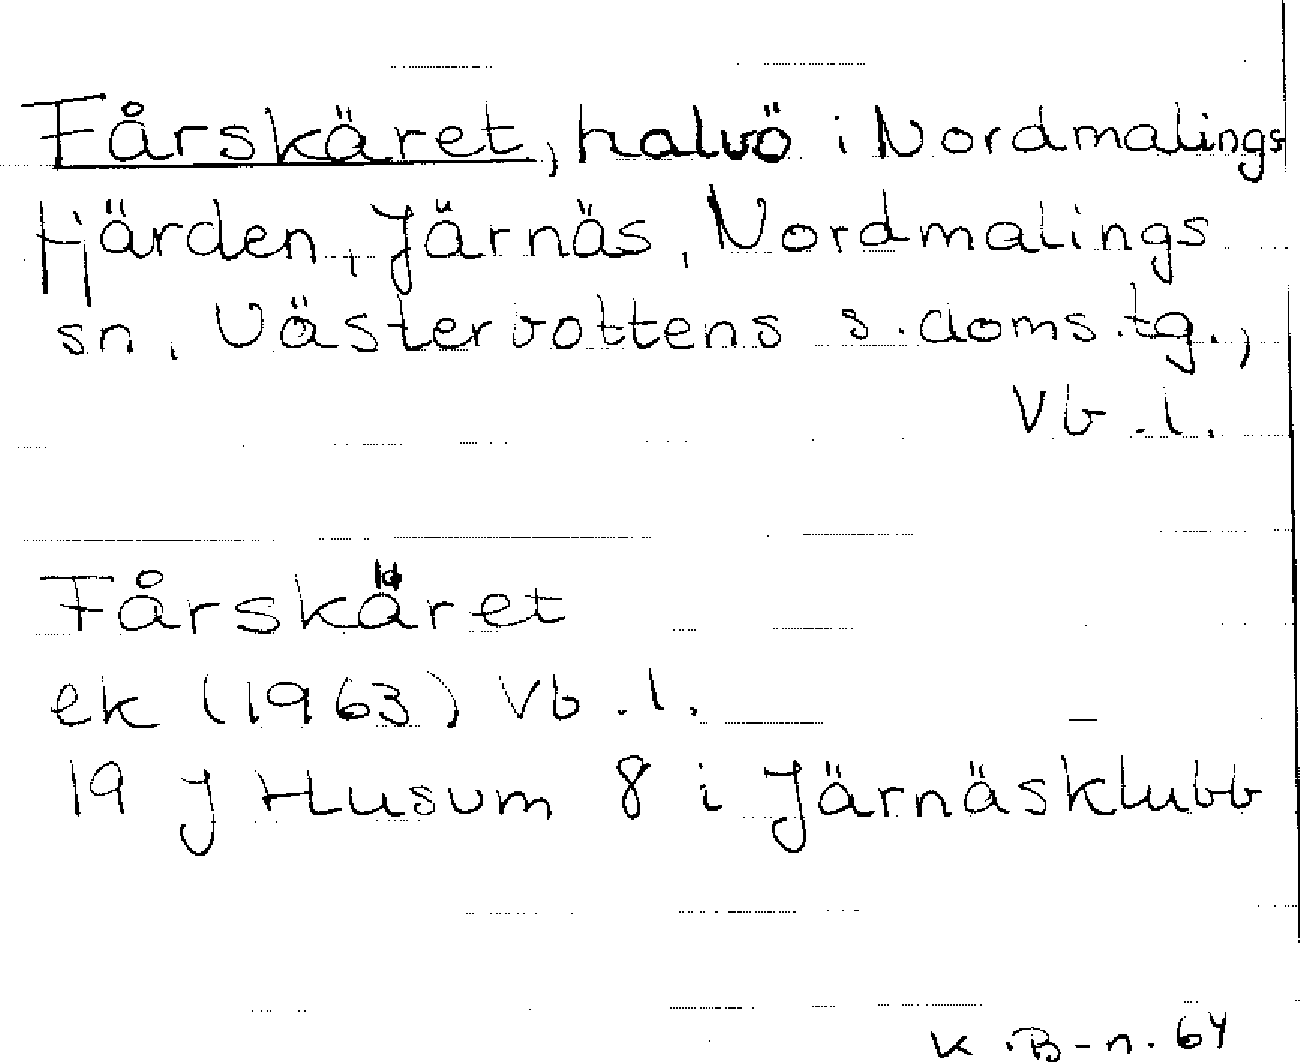 Fårskäret, halvö i Nordmalings
fjärden, Järnäs, Nordmalings
sn, Västerbottens s. doms.tg.,
Vb.l.
Fårskäret
ek (1963) Vb.l.
19 J Husum 8 i Järnäsklubb
K.B-n. 64